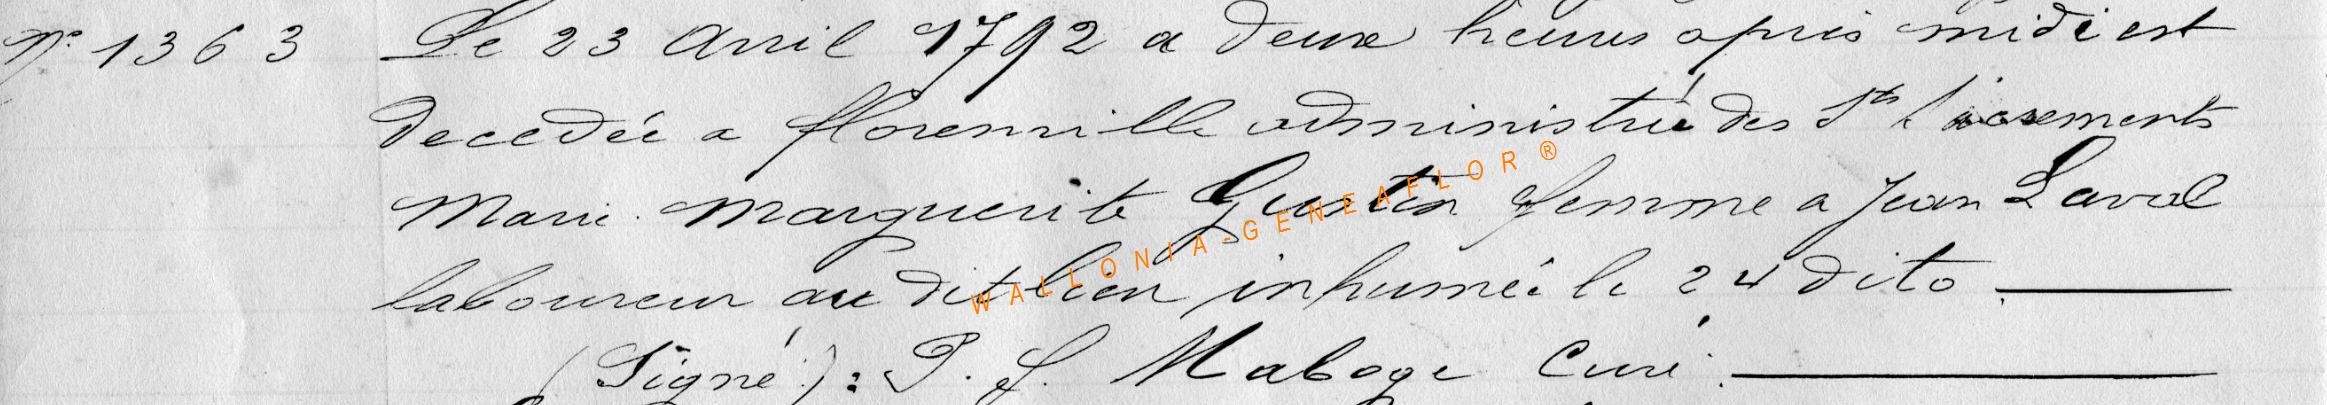 N° 1363 Le 23 Avril 1792 a deux heures après midi est
decedée a florenville administrée des Sts Sacrements
Marie Marguerite Gustin femme a Jean Laval
laboureur au dit lieu inhumée le 24 dito.
(Signé): P. J. Maboge Curé.
WALLONIA-GENEAFLOR ®